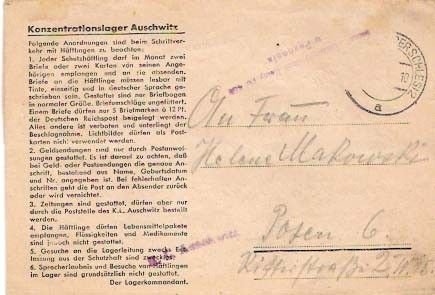 Konzentrationslager Auschwitz
Folgende Anordnungen sind beim Schriftver-
kehr mit Häftlingen zu beachten:
1. Jeder Schutzhäftling darf im Monat zwei
Briefe oder zwei Karten von seinen Ange-
hörigen empfangen und an sie absenden.
Briefe an die Häftlinge müssen lesbar mit
Tinte, einseitig und in deutscher Sprache ge-
schrieben sein. Gestattet sind nur Briefbogen
in normaler Größe. Briefumschläge ungefüttert.
Einem Briefe dürfen nur 5 Briefmarken à 12 Pf.
der Deutschen Reichspost beigelegt werden.
Alles andere ist verboten und unterliegt der
Beschlagnahme. Lichtbilder dürfen als Post-
karten nicht verwendet werden.
2. Geldsendungen sind nur durch Postanwei-
sungen gestattet. Es ist darauf zu achten, daß
bei Geld- oder Postsendungen die genaue An-
schrift, bestehend aus Name, Geburtsdatum
und Nr. angegeben ist. Bei fehlerhaften An-
schriften geht die Post an den Absender zurück
oder wird vernichtet.
3. Zeitungen sind gestattet, dürfen aber nur
durch die Poststelle des K.L. Auschwitz bestellt
werden.
4. Die Häftlinge dürfen Lebensmittelpakete
empfangen, Flüssigkeiten und Medikamente
sind jedoch nicht gestattet.
5. Gesuche an die Lagerleitung zwecks Ent-
lassung aus der Schutzhaft sind zwecklos.
6. Sprecherlaubnis und Besuche von Häftlingen
im Lager sind grundsätzlich nicht gestattet.
Der Lagerkommandant.
a
An Frau
Helene Makowski
Posen 6.